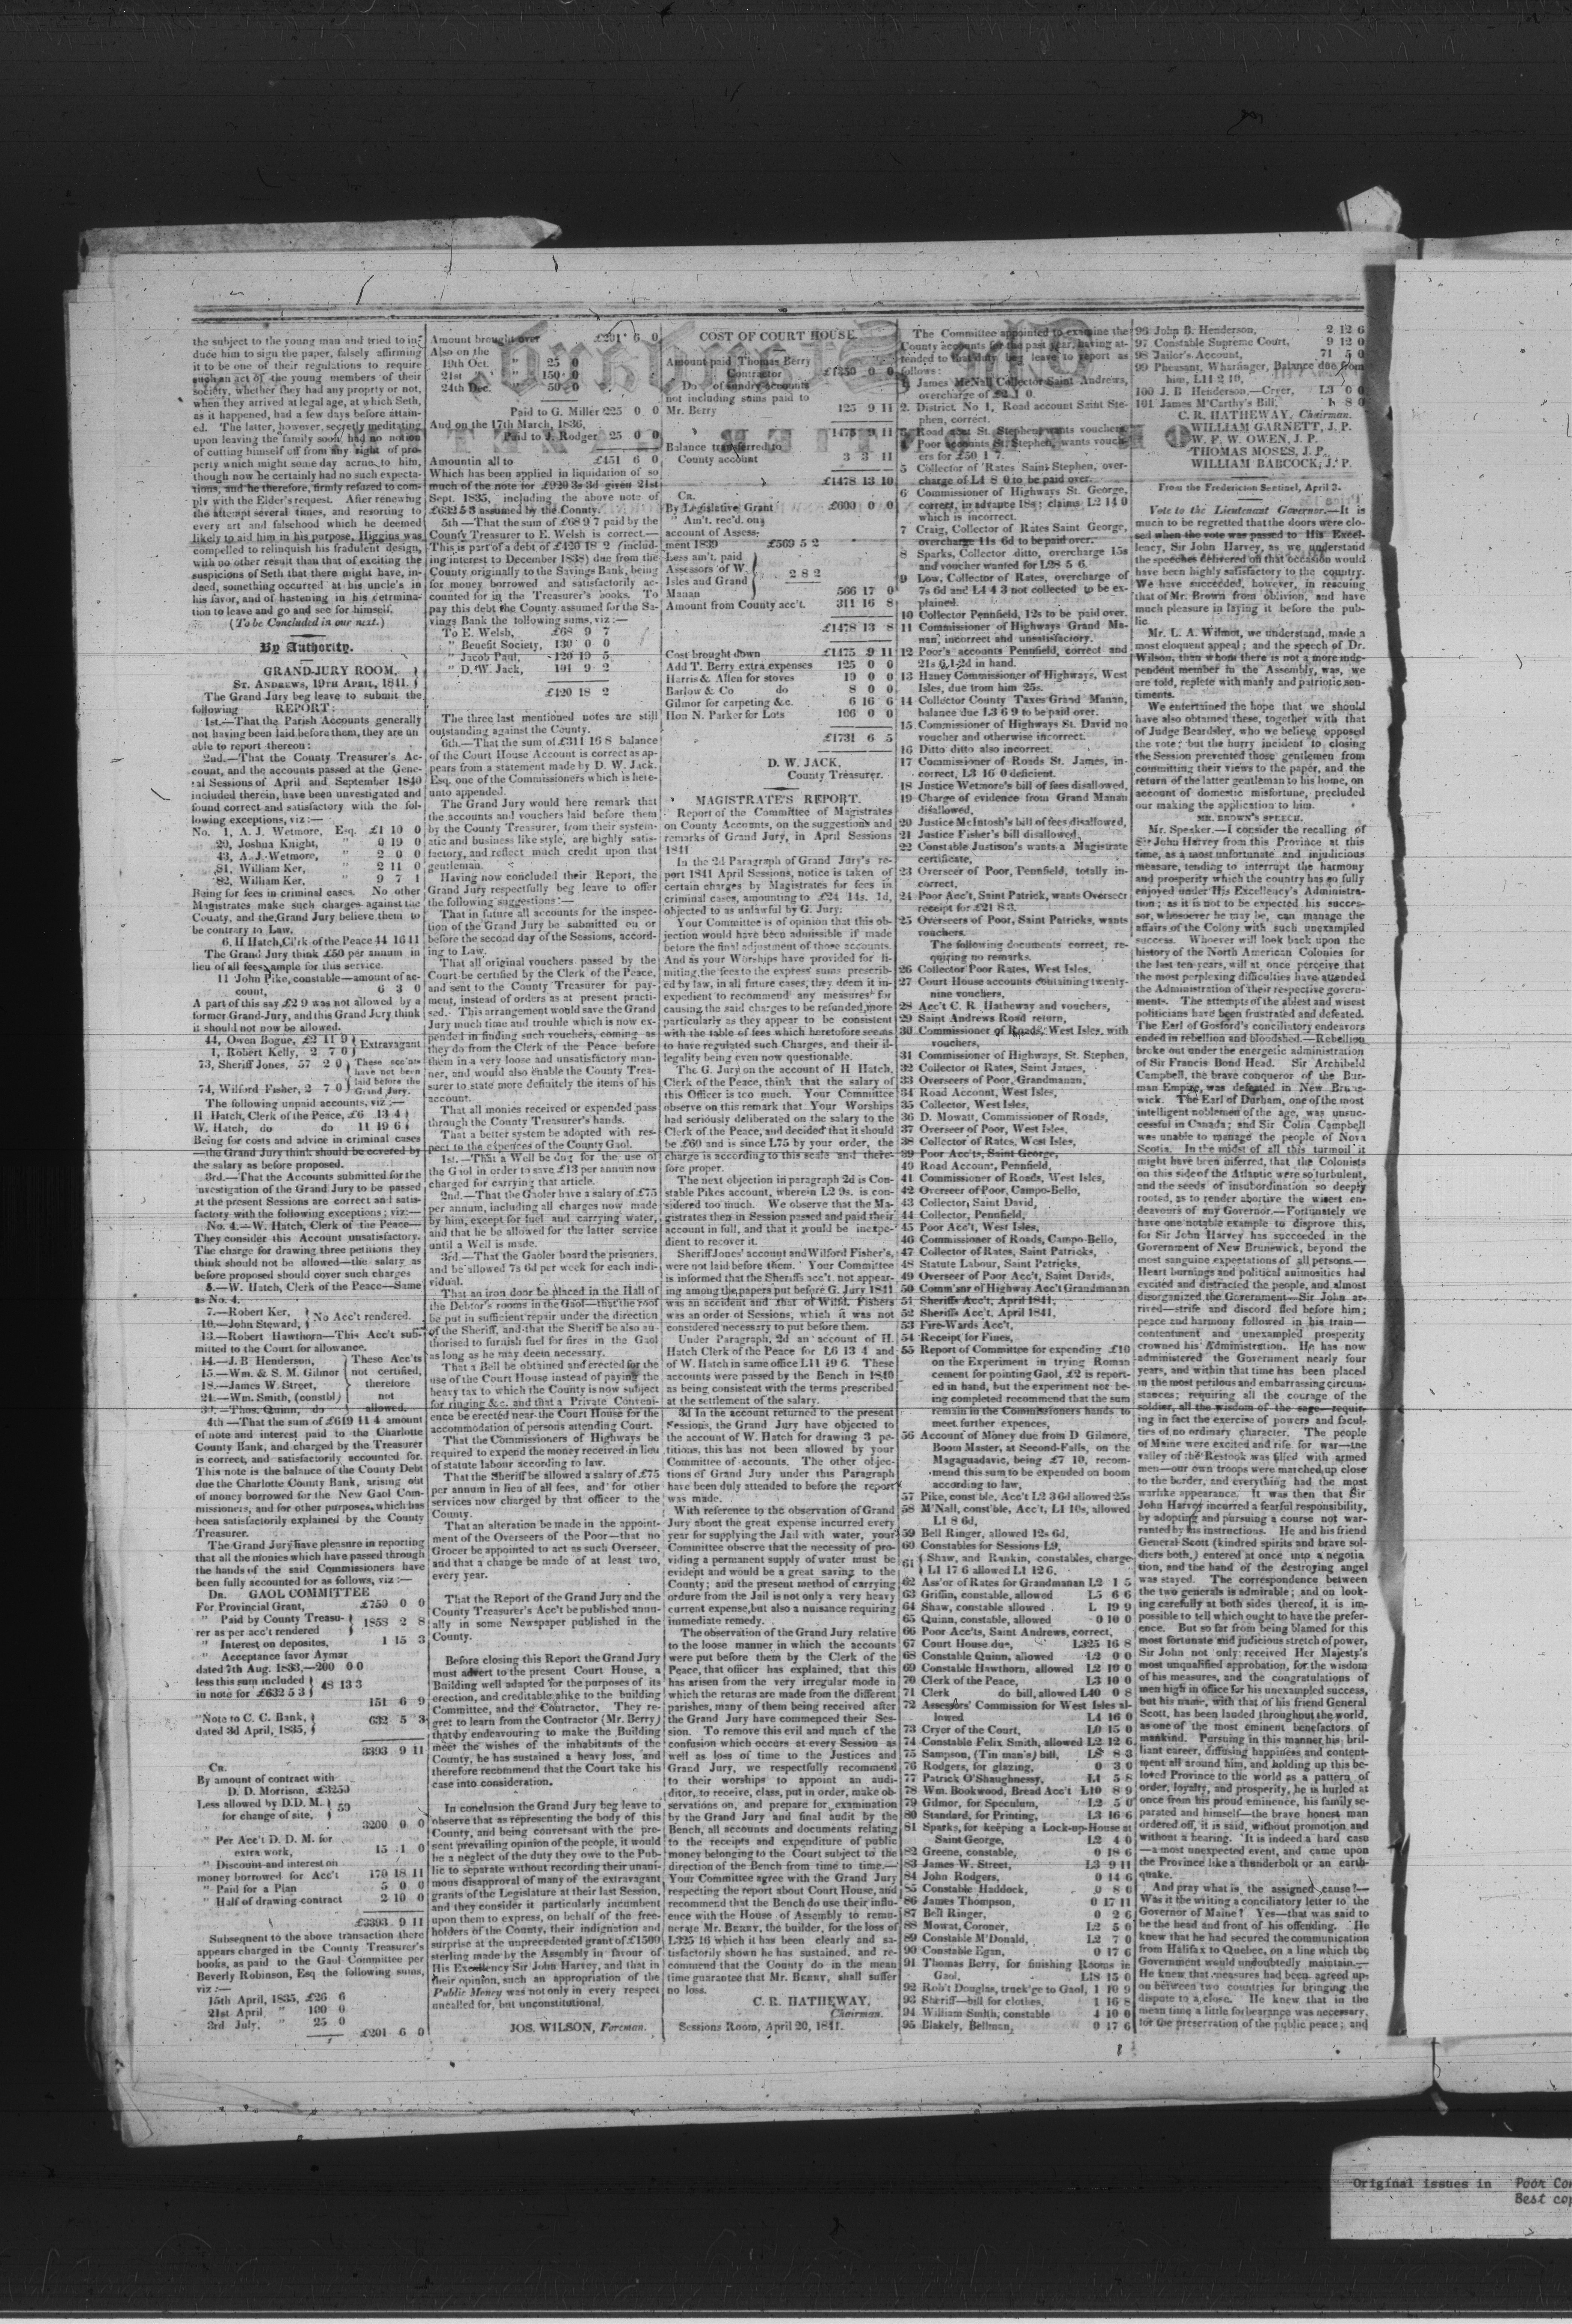 the subject to the young man and tried to in-
duce him to sign the paper, falsely affirming
it to be one of their regulations to require
such an act of the young members of their
society, whether they had any property or not,
when they arrived at legal age, at which Seth,
as it happened, had a few days before attain-
ed. The latter, however, secretly meditating
upon leaving the family soon, had no notion
of cutting himself off from any right of pro-
perty which might some day accrue to him,
though now he certainly had no such expecta-
tions, and he therefore, firmly refused to com-
ply with the Elder's request. After renewing
the attempt several times, and resorting to
every art and falsehood which he deemed
likely to aid him in his purpose, Higgins was
compelled to relinquish his fradulent design,
with no other result than that of exciting the
suspicions of Seth that there might have, in-
deed, something occurred at his uncle's in
his favor, and of hastening in his detrmina-
tion to leave and go and see for himself.
(To be Concluded in our next.)
By Authority.
GRAND-JURY ROOM,
St. Andrews, 19th April, 1841.
The Grand Jury beg leave to submit the
following REPORT:
1st.—That the Parish Accounts generally
not having been laid before them, they are un
able to report thereon:
2nd.—That the County Treasurer's Ac-
count, and the accounts passed at the Gene-
ral Sessions of April and September 1840
included therein, have been unvestigated and
found correct and satisfactory with the fol-
lowing exceptions, viz:—
No. 1, A. J. Wetmore, Esq. £1 10 0
29, Joshua Knight, " 0 19 0
43, A. J. Wetmore, " 2 0 0
81, William Ker, " 2 11 0
82, William Ker, " 9 7 1
Being for fees in criminal cases. No other
Magistrates make such charges against the
County, and the Grand Jury believe them to
be contrary to Law.
6, H Hatch, Clerk of the Peace 44 16 11
The Grand Jury think £50 per annum in
lieu of all fees ample for this service.
11 John Pike, constable—amount of ac-
count, 6 3 0
A part of this say £2 9 was not allowed by a
former Grand-Jury, and this Grand Jury think
it should not now be allowed.
44, Owen Bogue, £2 11 9 } Extravagant
1, Robert Kelly, 2 7 6
73, Sheriff Jones, 57 2 0 } These acc'nts have not been laid before the Grand Jury.
74, Wilford Fisher, 2 7 0
The following unpaid accounts, viz:—
H Hatch, Clerk of the Peace, £6 13 4
W. Hatch, do do 11 19 6
Being for costs and advice in criminal cases
—the Grand Jury think should be covered by
the salary as before proposed.
3rd.—That the Accounts submitted for the
investigation of the Grand Jury to be passed
at the present Sessions are correct and satis-
factory with the following exceptions; viz:—
No. 4.—W. Hatch, Clerk of the Peace—
They consider this Account unsatisfactory.
The charge for drawing three petitions they
think should not be allowed—the salary as
before proposed should cover such charges
5.—W. Hatch, Clerk of the Peace—Same
as No. 4.
7.—Robert Ker, } No Acc't rendered.
10.—John Steward,
13.—Robert Hawthorn—This Acc't sub-
mitted to the Court for allowance.
14.—J. B Henderson, } These Acc'ts
15.—Wm. & S. M. Gilmor not certified,
18.—James W. Street, therefore
21.—Wm. Smith, (constbl) not
—Thos. Quinn, do allowed.
4th—That the sum of £619 11 4 amount
of note and interest paid to the Charlotte
County Bank, and charged by the Treasurer
is correct, and satisfactorily accounted for.
This note is the balance of the County Debt
due the Charlotte County Bank, arising out
of money borrowed for the New Gaol Com-
missioners, and for other purposes, which has
been satisfactorily explained by the County
Treasurer.
The Grand Jury have pleasure in reporting
that all the monies which have passed through
the hands of the said Commissioners have
been fully accounted for as follows, viz:—
Dr. GAOL COMMITTEE
For Provincial Grant, £750 0 0
" Paid by County Treasu-
rer as per acc't rendered 1858 2 8
" Interest on deposites, 1 15 3
" Acceptance favor Aymar
dated 7th Aug. 1833,—200 0 0
less this sum included
in note for £632 5 3 48 13 3
151 6 9
"Note to C. C. Bank,
dated 3d April, 1835, 632 5 3
3393 9 11
Cr.
By amount of contract with
D. D. Morrison, £3250
Less allowed by D.D. M.
for change of site, 50
3200 0 0
" Per Acc't D. D. M. for
extra work, 15 1 0
" Discount and interest on
money borrowed for Acc't 170 18 11
" Paid for a Plan 5 0 0
" Half of drawing contract 2 10 0
£3393 9 11
Subsequent to the above transaction there
appears charged in the County Treasurer's
books, as paid to the Gaol Committee per
Beverly Robinson, Esq the following sums,
viz:—
15th April, 1835, £26 6
21st April " 100 0
3rd July, " 25 0
£201 6 0
Amount brought over £201 6 0
Also on the
19th Oct. " 25 0
21st " 150 0
24th Dec. " 50 0
Paid to G. Miller 225 0 0
And on the 17th March, 1836,
Paid to J. Rodger 25 0 0
Amountin all to £451 6 0
Which has been applied in liquidation of so
much of the note for £920 3s 3d given 21st
Sept. 1835, including the above note of
£632 5 3 assumed by the County.
5th—That the sum of £68 9 7 paid by the
County Treasurer to E. Welsh is correct.—
This is part of a debt of £420 18 2 (includ-
ing interest to December 1838) due from the
County originally to the Savings Bank, being
for money borrowed and satisfactorily ac-
counted for in the Treasurer's books. To
pay this debt the County assumed for the Sa-
vings Bank the following sums, viz:—
To E. Welsh, £68 9 7
" Benefit Society, 130 0 0
" Jacob Paul, 120 19 5
" D. W. Jack, 101 9 2
£420 18 2
The three last mentioned notes are still
outstanding against the County.
6th.—That the sum of £311 16 8 balance
of the Court House Account is correct as ap-
pears from a statement made by D. W. Jack.
Esq. one of the Commissioners which is here-
unto appended.
The Grand Jury would here remark that
the accounts and vouchers laid before them
by the County Treasurer, from their system-
atic and business like style, are highly satis-
factory, and reflect much credit upon that
gentleman.
Having now concluded their Report, the
Grand Jury respectfully beg leave to offer
the following suggestions:—
That in future all accounts for the inspec-
tion of the Grand Jury be submitted on or
before the second day of the Sessions, accord-
ing to Law.
That all original vouchers passed by the
Court be certified by the Clerk of the Peace,
and sent to the County Treasurer for pay-
ment, instead of orders as at present practi-
sed. This arrangement would save the Grand
Jury much time and trouble which is now ex-
pended in finding such vouchers, coming as
they do from the Clerk of the Peace before
them in a very loose and unsatisfactory man-
ner, and would also enable the County Trea-
surer to state more definitely the items of his
account.
That all monies received or expended pass
through the County Treasurer's hands.
That a better system be adopted with res-
pect to the expences of the County Gaol.
1st.—That a Well be dug for the use of
the Gaol in order to save £13 per annum now
charged for carrying that article.
2nd.—That the Gaoler have a salary of £75
per annum, including all charges now made
by him, except for fuel and carrying water,
and that he be allowed for the latter service
until a Well is made.
3rd.—That the Gaoler board the prisoners,
and be allowed 7s 6d per week for each indi-
vidual.
That an iron door be placed in the Hall of
the Debtor's rooms in the Gaol—that the roof
be put in sufficient repair under the direction
of the Sheriff, and that the Sheriff be also au-
thorised to furnish fuel for fires in the Gaol
as long as he may deem necessary.
That a Bell be obtained and erected for the
use of the Court House instead of paying the
heavy tax to which the County is now subject
for ringing &c. and that a Private Conveni-
ence be erected near the Court House for the
accommodation of persons attending Court.
That the Commissioners of Highways be
required to expend the money received in lieu
of statute labour according to law.
That the Sheriff be allowed a salary of £75
per annum in lieu of all fees, and for other
services now charged by that officer to the
County.
That an alteration be made in the appoint-
ment of the Overseers of the Poor—that no
Grocer be appointed to act as such Overseer,
and that a change be made of at least two,
every year.
That the Report of the Grand Jury and the
County Treasurer's Acc't be published annu-
ally in some Newspaper published in the
County.
Before closing this Report the Grand Jury
must advert to the present Court House, a
Building well adapted for the purposes of its
erection, and creditable alike to the building
Committee, and the Contractor. They re-
gret to learn from the Contractor (Mr. Berry)
that by endeavouring to make the Building
meet the wishes of the inhabitants of the
County, he has sustained a heavy loss, and
therefore recommend that the Court take his
case into consideration.
In conclusion the Grand Jury beg leave to
observe that as representing the body of this
County, and being conversant with the pre-
sent prevailing opinion of the people, it would
be a neglect of the duty they owe to the Pub-
lic to separate without recording their unani-
mous disapproval of many of the extravagant
grants of the Legislature at their last Session,
and they consider it particularly incumbent
upon them to express, on behalf of the free-
holders of the County, their indignation and
surprise at the unprecedented grant of £1500
sterling made by the Assembly in favour of
His Excellency Sir John Harvey, and that in
their opinion, such an appropriation of the
Public Money was not only in every respect
uncalled for, but unconstitutional.
JOS. WILSON, Foreman.
COST OF COURT HOUSE.
Amount paid Thomas Berry
Contractor £1350 0 0
Do of sundry accounts
not including sums paid to
Mr. Berry 125 9 11
1475 9 11
Balance transferred to
County account 3 3 11
£1478 13 10
Cr.
By Legislative Grant £600 0 0
" Am't. rec'd. on
account of Assess-
ment 1839 £569 5 2
Less am't. paid
Assessors of W.
Isles and Grand 2 8 2
Manan 566 17 0
Amount from County acc't. 311 16 8
£1478 13 8
Cost brought down £1475 9 11
Add T. Berry extra expenses 125 0 0
Harris & Allen for stoves 10 0 0
Barlow & Co do 8 0 0
Gilmor for carpeting &c. 6 16 6
Hon N. Parker for Lots 106 0 0
£1731 6 5
D. W. JACK,
County Treasurer.
MAGISTRATE'S REPORT.
Report of the Committee of Magistrates
on County Accounts, on the suggestions and
remarks of Grand Jury, in April Sessions
1841
In the 2d Paragraph of Grand Jury's re-
port 1841 April Sessions, notice is taken of
certain charges by Magistrates for fees in
criminal cases, amounting to £24 14s. 1d,
objected to as unlawful by G. Jury.
Your Committee is of opinion that this ob-
jection would have been admissible if made
before the final adjustment of those accounts.
And as your Worships have provided for li-
miting the fees to the express sums prescrib-
ed by law, in all future cases, they deem it in-
expedient to recommend any measures for
causing the said charges to be refunded, more
particularly as they appear to be consistent
with the table of fees which heretofore seems
to have regulated such Charges, and their il-
legality being even now questionable.
The G. Jury on the account of H Hatch,
Clerk of the Peace, think that the salary of
this Officer is too much. Your Committee
observe on this remark that Your Worships
had seriously deliberated on the salary to the
Clerk of the Peace, and decided that it should
be £60 and is since L75 by your order, the
charge is according to this scale and there-
fore proper.
The next objection in paragraph 2d is Con-
stable Pikes account, wherein L2 9s. is con-
sidered too much. We observe that the Ma-
gistrates then in Session passed and paid their
account in full, and that it would be inexpe-
dient to recover it.
Sheriff Jones' account and Wilford Fisher's,
were not laid before them. Your Committee
is informed that the Sheriffs acc't. not appear-
ing among the papers put before G. Jury 1841
was an accident and that of Wilfd. Fishers
was an order of Sessions, which it was not
considered necessary to put before them.
Under Paragraph, 2d an account of H.
Hatch Clerk of the Peace for L6 13 4 and
of W. Hatch in same office L11 19 6. These
accounts were passed by the Bench in 1840
as being consistent with the terms prescribed
at the settlement of the salary.
3d In the account returned to the present
Sessions, the Grand Jury have objected to
the account of W. Hatch for drawing 3 pe-
titions, this has not been allowed by your
Committee of accounts. The other objec-
tions of Grand Jury under this Paragraph
have been duly attended to before the report
was made.
With reference to the observation of Grand
Jury about the great expense incurred every
year for supplying the Jail with water, your
Committee observe that the necessity of pro-
viding a permanent supply of water must be
evident and would be a great saving to the
County; and the present method of carrying
ordure from the Jail is not only a very heavy
current expense, but also a nuisance requiring
immediate remedy.
The observation of the Grand Jury relative
to the loose manner in which the accounts
were put before them by the Clerk of the
Peace, that officer has explained, that this
has arisen from the very irregular mode in
which the returns are made from the different
parishes, many of them being received after
the Grand Jury have commenced their Ses-
sion. To remove this evil and much of the
confusion which occurs at every Session as
well as loss of time to the Justices and
Grand Jury, we respectfully recommend
to their worships to appoint an audi-
ditor, to receive, class, put in order, make ob-
servations on, and prepare for examination
by the Grand Jury and final audit by the
Bench, all accounts and documents relating
to the receipts and expenditure of public
money belonging to the Court subject to the
direction of the Bench from time to time.—
Your Committee agree with the Grand Jury
respecting the report about Court House, and
recommend that the Bench do use their influ-
ence with the House of Assembly to remu-
nerate Mr. Berry, the builder, for the loss of
L325 16 which it has been clearly and sa-
tisfactorily shown he has sustained, and re-
commend that the County do in the mean
time guarantee that Mr. Berry, shall suffer
no loss.
C. R. HATHEWAY,
Chairman.
Sessions Room, April 20, 1841.
The Committee appointed to examine the
County accounts for the past year, having at-
tended to that duty beg leave to report as
follows:
1 James McNall Collector Saint Andrews,
overcharge of £2 1 0.
2. District No 1, Road account Saint Ste-
phen, correct.
Road acct St. Stephen, wants vouchers,
Poor accounts St. Stephen, wants vouch-
ers for £50 1 7.
5 Collector of Rates Saint Stephen, over-
charge of L4 8 0 to be paid over.
6 Commissioner of Highways St. George,
correct, in advance 18s; claims L2 14 0
which is incorrect.
7 Craig, Collector of Rates Saint George,
overcharge 11s 6d to be paid over.
8 Sparks, Collector ditto, overcharge 15s
and voucher wanted for L28 5 6.
9 Low, Collector of Rates, overcharge of
7s 6d and L4 4 3 not collected to be ex-
plained.
10 Collector Pennfield, 12s to be paid over.
11 Commissioner of Highways Grand Ma-
nan, incorrect and unsatisfactory.
12 Poor's accounts Pennfield, correct and
21s 6 1-2d in hand.
13 Haney Commissioner of Highways, West
Isles, due from him 25s.
14 Collector County Taxes Grand Manan,
balance due L3 6 9 to be paid over.
15 Commissioner of Highways St. David no
voucher and otherwise incorrect.
16 Ditto ditto also incorrect.
17 Commissioner of Roads St. James, in-
correct, L3 16 0 deficient.
18 Justice Wetmore's bill of fees disallowed,
19 Charge of evidence from Grand Manan
disallowed,
20 Justice McIntosh's bill of fees disallowed,
21 Justice Fisher's bill disallowed,
22 Constable Justison's wants a Magistrate
certificate,
23 Overseer of Poor, Pennfield, totally in-
correct,
24 Poor Acc't, Saint Patrick, wants Overseer
receipt for £21 8 3.
25 Overseers of Poor, Saint Patricks, wants
vouchers.
The following documents correct, re-
quiring no remarks.
26 Collector Poor Rates, West Isles,
27 Court House accounts containing twenty-
nine vouchers,
28 Acc't C. R. Hatheway and vouchers,
29 Saint Andrews Road return,
30 Commissioner of Roads, West Isles, with
vouchers,
31 Commissioner of Highways, St. Stephen,
32 Collector of Rates, Saint James,
33 Overseers of Poor, Grandmanan,
34 Road Account, West Isles,
35 Collector, West Isles,
36 D. Mowatt, Commissioner of Roads,
37 Overseer of Poor, West Isles,
38 Collector of Rates, West Isles,
39 Poor Ac'ts, Saint George,
40 Road Account, Pennfield,
41 Commissioner of Roads, West Isles,
42 Overseer of Poor, Campo-Bello,
43 Collector, Saint David,
44 Collector, Pennfield,
45 Poor Acc't, West Isles,
46 Commissioner of Roads, Campo-Bello,
47 Collector of Rates, Saint Patricks,
48 Statute Labour, Saint Patricks,
49 Overseer of Poor Acc't, Saint Davids,
50 Comm'snr of Highway Acc't Grandmanan
51 Sheriffs Acc't, April 1841,
52 Sheriffs Acc't, April 1841,
53 Fire-Wards Acc't,
54 Receipt for Fines,
55 Report of Committee for expending £10
on the Experiment in trying Roman
cement for pointing Gaol, £2 is report-
ed in hand, but the experiment not be-
ing completed recommend that the sum
remain in the Commissioners hands to
meet further expences,
56 Account of Money due from D Gilmore,
Boom Master, at Second-Falls, on the
Magaguadavic, being £7 10, recom-
mend this sum to be expended on boom
according to law,
57 Pike, const'ble, Acc't L2 3 6d allowed 25s
58 M'Nall, const'ble, Acc't, L1 10s, allowed
L1 8 6d,
59 Bell Ringer, allowed 12s 6d,
60 Constables for Sessions L9,
61 Shaw, and Rankin, constables, charge
L1 17 6 allowed L1 12 6,
62 Ass'or of Rates for Grandmanan L2 1 5
63 Griffin, constable, allowed L5 6 6
64 Shaw, constable allowed L 19 9
65 Quinn, constable, allowed 0 10 0
66 Poor Ac'ts, Saint Andrews, correct,
67 Court House due, L325 16 8
68 Constable Quinn, allowed L2 0 0
69 Constable Hawthorn, allowed L2 10 0
70 Clerk of the Peace, L3 10 0
71 Clerk do bill, allowed L40 0 8
72 Assessors' Commission for West Isles al-
lowed L4 16 0
73 Cryer of the Court, L0 15 0
74 Constable Felix Smith, allowed L2 12 6
75 Sampson, (Tin man's) bill, L8 8 3
76 Rodgers, for glazing, 0 3 0
77 Patrick O'Shaughnessy, L1 5 8
78 Wm. Bookwood, Bread Acc't L10 8 9
79 Gilmor, for Speculum, L2 5 0
80 Standard, for Printing, L3 16 6
81 Sparks, for keeping a Lock-up-House at
Saint George, L2 4 0
82 Greene, constable, 0 18 6
83 James W. Street, L3 9 11
84 John Rodgers, 0 14 6
85 Constable Haddock, 0 8 0
86 James Thompson, 0 17 11
87 Bell Ringer, 0 2 6
88 Mowat, Coroner, L2 5 0
89 Constable M'Donald, L2 7 0
90 Constable Egan, 0 17 6
91 Thomas Berry, for finishing Rooms in
Gaol, L18 15 0
92 Rob't Douglas, truck'ge to Gaol, 1 10 9
93 Sheriff—bill for clothes, 1 16 8
94 William Smith, constable 4 10 0
95 Blakely, Bellman, 0 17 6
96 John B. Henderson, 2 12 6
97 Constable Supreme Court, 9 12 0
98 Jailor's Account, 71 5 0
99 Pheasant, Wharfinger, Balance due from
him, L11 2 10,
100 J. B Henderson,—Cryer, L3 0 0
101 James M'Carthy's Bill, 1 8 0
C. R. HATHEWAY, Chairman.
WILLIAM GARNETT, J. P.
W. F. W. OWEN, J. P.
THOMAS MOSES, J. P.
WILLIAM BABCOCK, J. P.
From the Fredericton Sentinel, April 3.
Vote to the Lieutenant Governor.—It is
much to be regretted that the doors were clo-
sed when the vote was passed to His Excel-
lency, Sir John Harvey, as we understand
the speeches delivered on that occasion would
have been highly satisfactory to the country.
We have succeeded, however, in rescuing
that of Mr. Brown from oblivion, and have
much pleasure in laying it before the pub-
lic.
Mr. L. A. Wilmot, we understand, made a
most eloquent appeal; and the speech of Dr.
Wilson, than whom there is not a more inde-
pendent member in the Assembly, was, we
are told, replete with manly and patriotic sen-
timents.
We entertained the hope that we should
have also obtained these, together with that
of Judge Beardsley, who we believe opposed
the vote; but the hurry incident to closing
the Session prevented those gentlemen from
committing their views to the paper, and the
return of the latter gentleman to his home, on
account of domestic misfortune, precluded
our making the application to him.
MR. BROWN'S SPEECH.
Mr. Speaker.—I consider the recalling of
Sir John Harvey from this Province at this
time, as a most unfortunate and injudicious
measure, tending to interrupt the harmony
and prosperity which the country has so fully
enjoyed under His Excellency's Administra-
tion; as it is not to be expected his succes-
sor, whosoever he may be, can manage the
affairs of the Colony with such unexampled
success. Whoever will look back upon the
history of the North American Colonies for
the last ten years, will at once perceive that
the most perplexing difficulties have attended
the Administration of their respective govern-
ments. The attempts of the ablest and wisest
politicians have been frustrated and defeated.
The Earl of Gosford's conciliatory endeavors
ended in rebellion and bloodshed.—Rebellion
broke out under the energetic administration
of Sir Francis Bond Head. Sir Archibeld
Campbell, the brave conqueror of the Bur-
man Empire, was defeated in New Bruns-
wick. The Earl of Durham, one of the most
intelligent noblemen of the age, was unsuc-
cessful in Canada; and Sir Colin Campbell
was unable to manage the people of Nova
Scotia. In the midst of all this turmoil it
might have been inferred, that the Colonists
on this side of the Atlantic were so turbulent,
and the seeds of insubordination so deeply
rooted, as to render abortive the wisest en-
deavours of any Governor.—Fortunately we
have one notable example to disprove this,
for Sir John Harvey has succeeded in the
Government of New Brunswick, beyond the
most sanguine expectations of all persons.—
Heart burnings and political animosities had
excited and distracted the people, and almost
disorganized the Government—Sir John ar-
rived—strife and discord fled before him;
peace and harmony followed in his train—
contentment and unexampled prosperity
crowned his Administration. He has now
administered the Government nearly four
years, and within that time has been placed
in the most perilous and embarrassing circum-
stances; requiring all the courage of the
soldier, all the wisdom of the sage—requir-
ing in fact the exercise of powers and facul-
ties of no ordinary character. The people
of Maine were excited and rife for war—the
valley of the Restook was filled with armed
men—our own troops were marched up close
to the border, and everything had the most
warlike appearance. It was then that Sir
John Harvey incurred a fearful responsibility,
by adopting and pursuing a course not war-
ranted by his instructions. He and his friend
General Scott (kindred spirits and brave sol-
diers both,) entered at once into a negotia
tion, and the hand of the destroying angel
was stayed. The correspondence between
the two generals is admirable; and on look-
ing carefully at both sides thereof, it is im-
possible to tell which ought to have the prefer-
ence. But so far from being blamed for this
most fortunate and judicious stretch of power,
Sir John not only received Her Majesty's
most unqualified approbation, for the wisdom
of his measures, and the congratulations of
men high in office for his unexampled success,
but his name, with that of his friend General
Scott, has been lauded throughout the world,
as one of the most eminent benefactors of
mankind. Pursuing in this manner his bril-
liant career, diffusing happiness and content-
ment all around him, and holding up this be-
loved Province to the world as a pattern of
order, loyalty, and prosperity, he is hurled at
once from his proud eminence, his family se-
parated and himself—the brave honest man
ordered off, it is said, without promotion and
without a hearing. It is indeed a hard case
—a most unexpected event, and came upon
the Province like a thunderbolt or an earth-
quake.
And pray what is the assigned cause?—
Was it the writing a conciliatory letter to the
Governor of Maine? Yes—that was said to
be the head and front of his offending. He
knew that he had secured the communication
from Halifax to Quebec, on a line which the
Government would undoubtedly maintain.—
He knew that measures had been agreed up-
on between two countries for bringing the
dispute to a close. He knew that in the
mean time a little forbearance was necessary,
for the preservation of the public peace; and
Original issues in Poor Con
Best cop